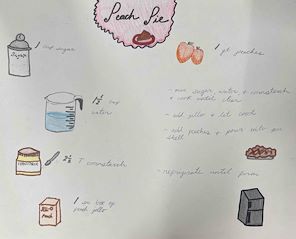 Peach Pie
1 cup sugar
Sugar
1 pt. peaches
1 1/2 cup
water
- mix sugar, water & cornstarch
& cook until clear
- add jello & let cool
- add peaches & pour into pie
shell
2 1/2 T cornstarch
- refrigerate until firm
1 sm box of
peach jello
Jell-o
Peach